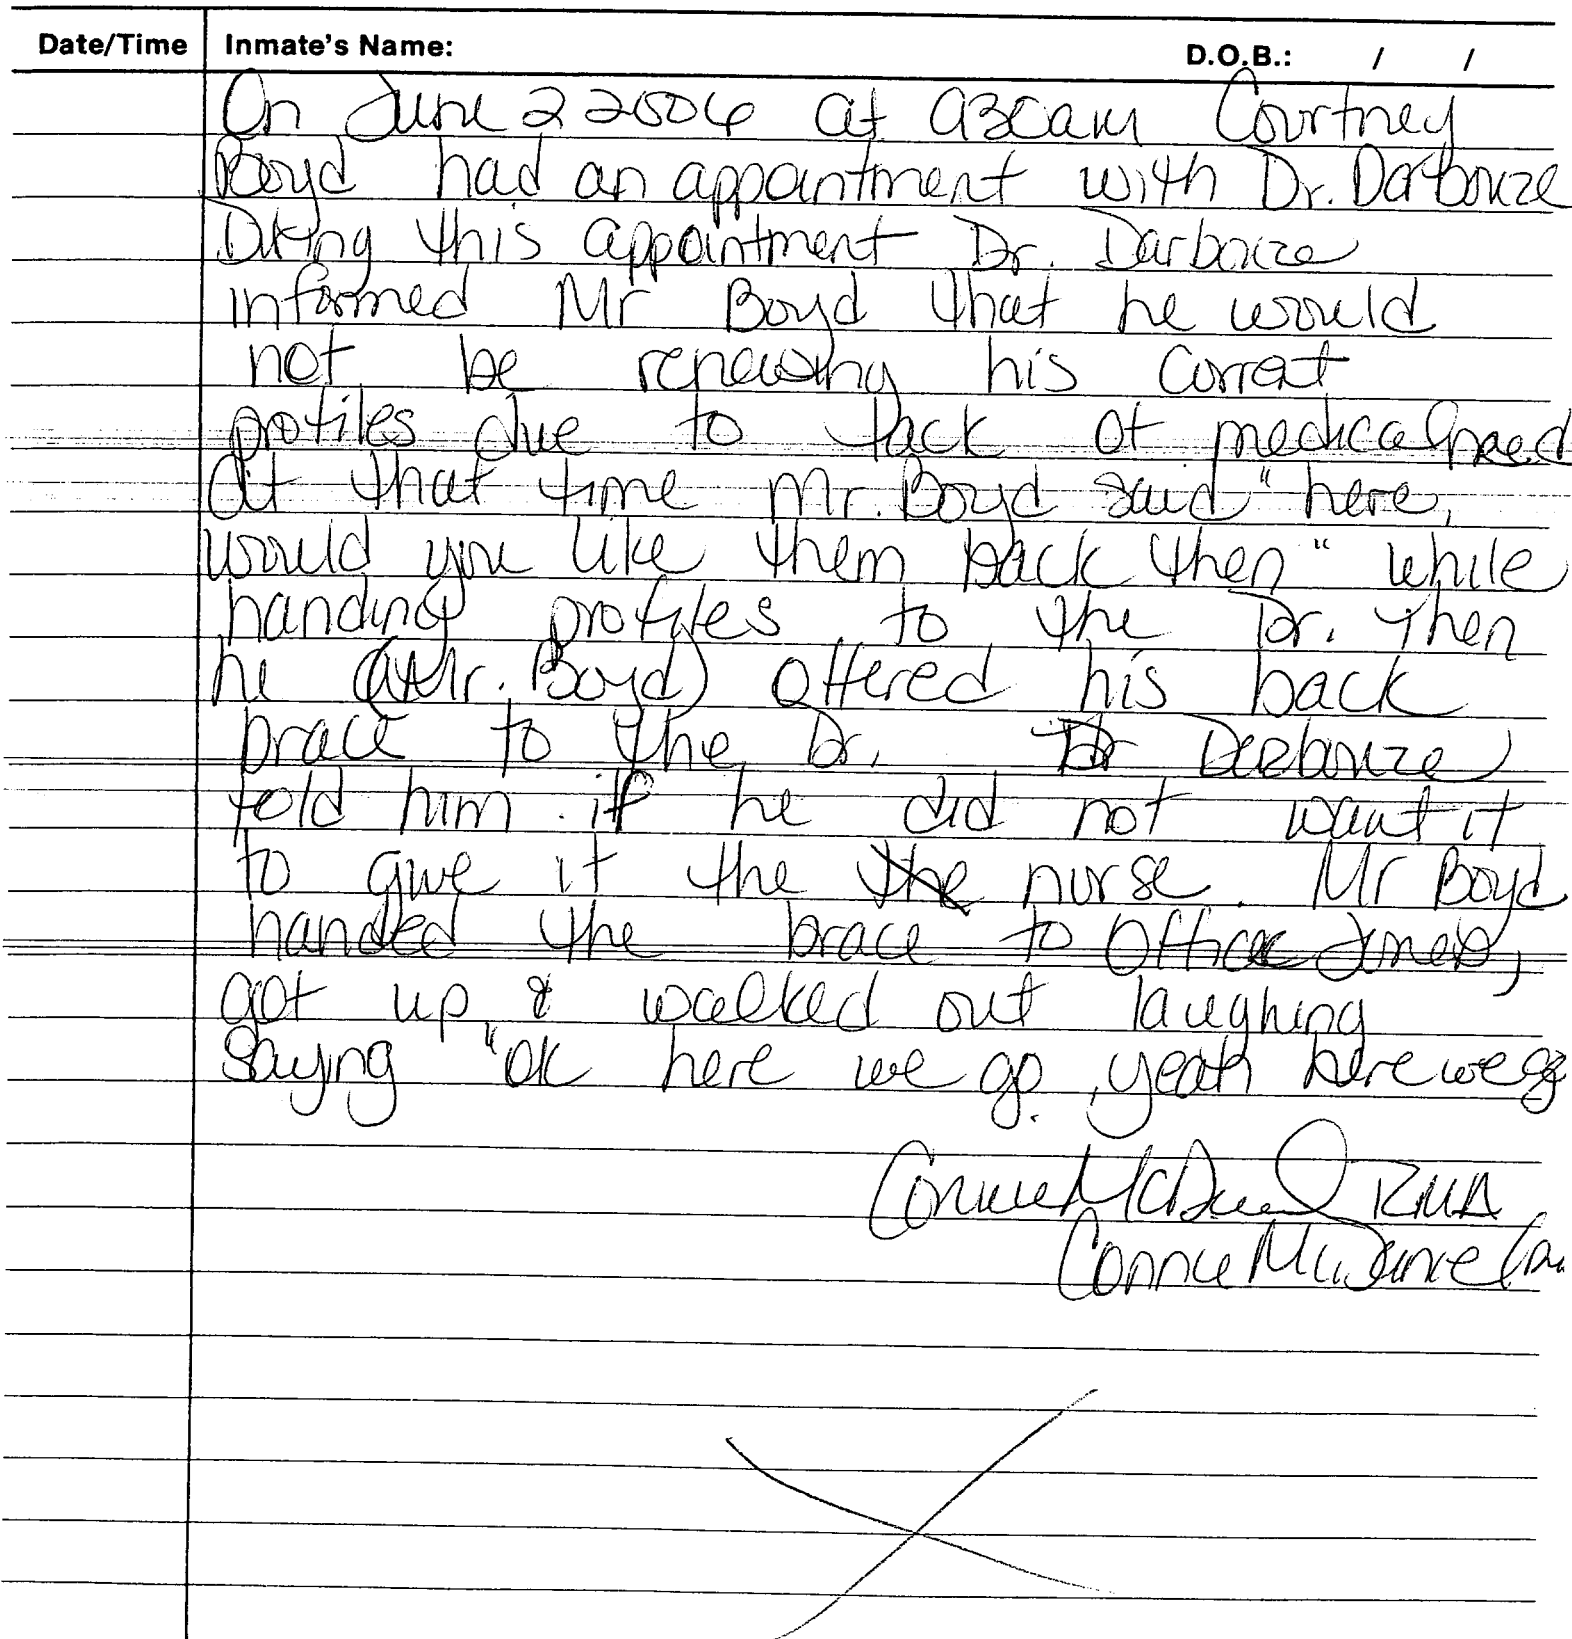 Date/Time Inmate's Name: D.O.B.: / /
On June 2 2006 at 930am Courtney
Boyd had an appointment with Dr. Darbouze
During this appointment Dr. Darbouze
informed Mr Boyd that he would
not be renewing his current
profiles due to lack of medical need
at that time Mr. Boyd said "here,
would you like them back then" while
handing profiles to the Dr. Then
he (Mr. Boyd) offered his back
brace to the Dr. Dr Darbouze
told him if he did not want it
to give it the the nurse. Mr Boyd
handed the brace to Officer
got up & walked out laughing
Saying "ok here we go, yeah here we go
Connie McDaniel RMA
Connie McDaniel